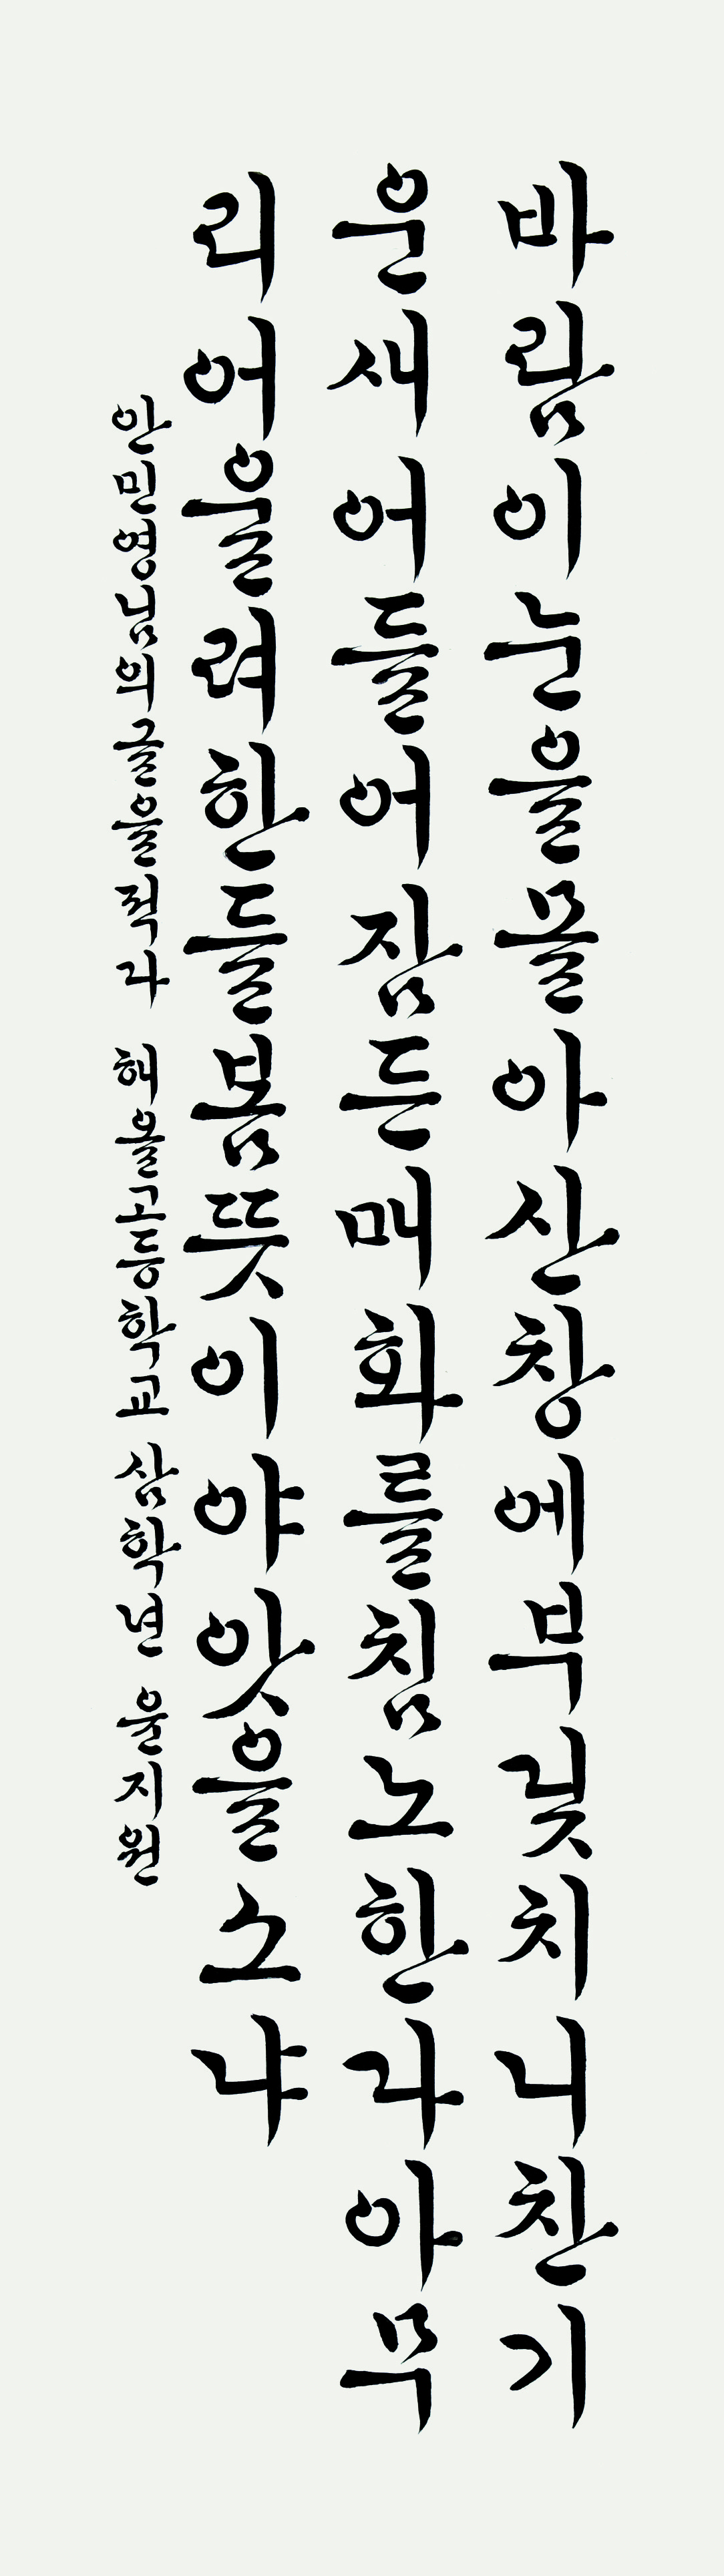 바람이눈을몰아산창에부딪치니찬기
운새어들어잠든매화를침노한다아무
리어울려한들봄뜻이야앗을소냐
안민영님의글을적다 해울고등학교 삼학년 윤지원